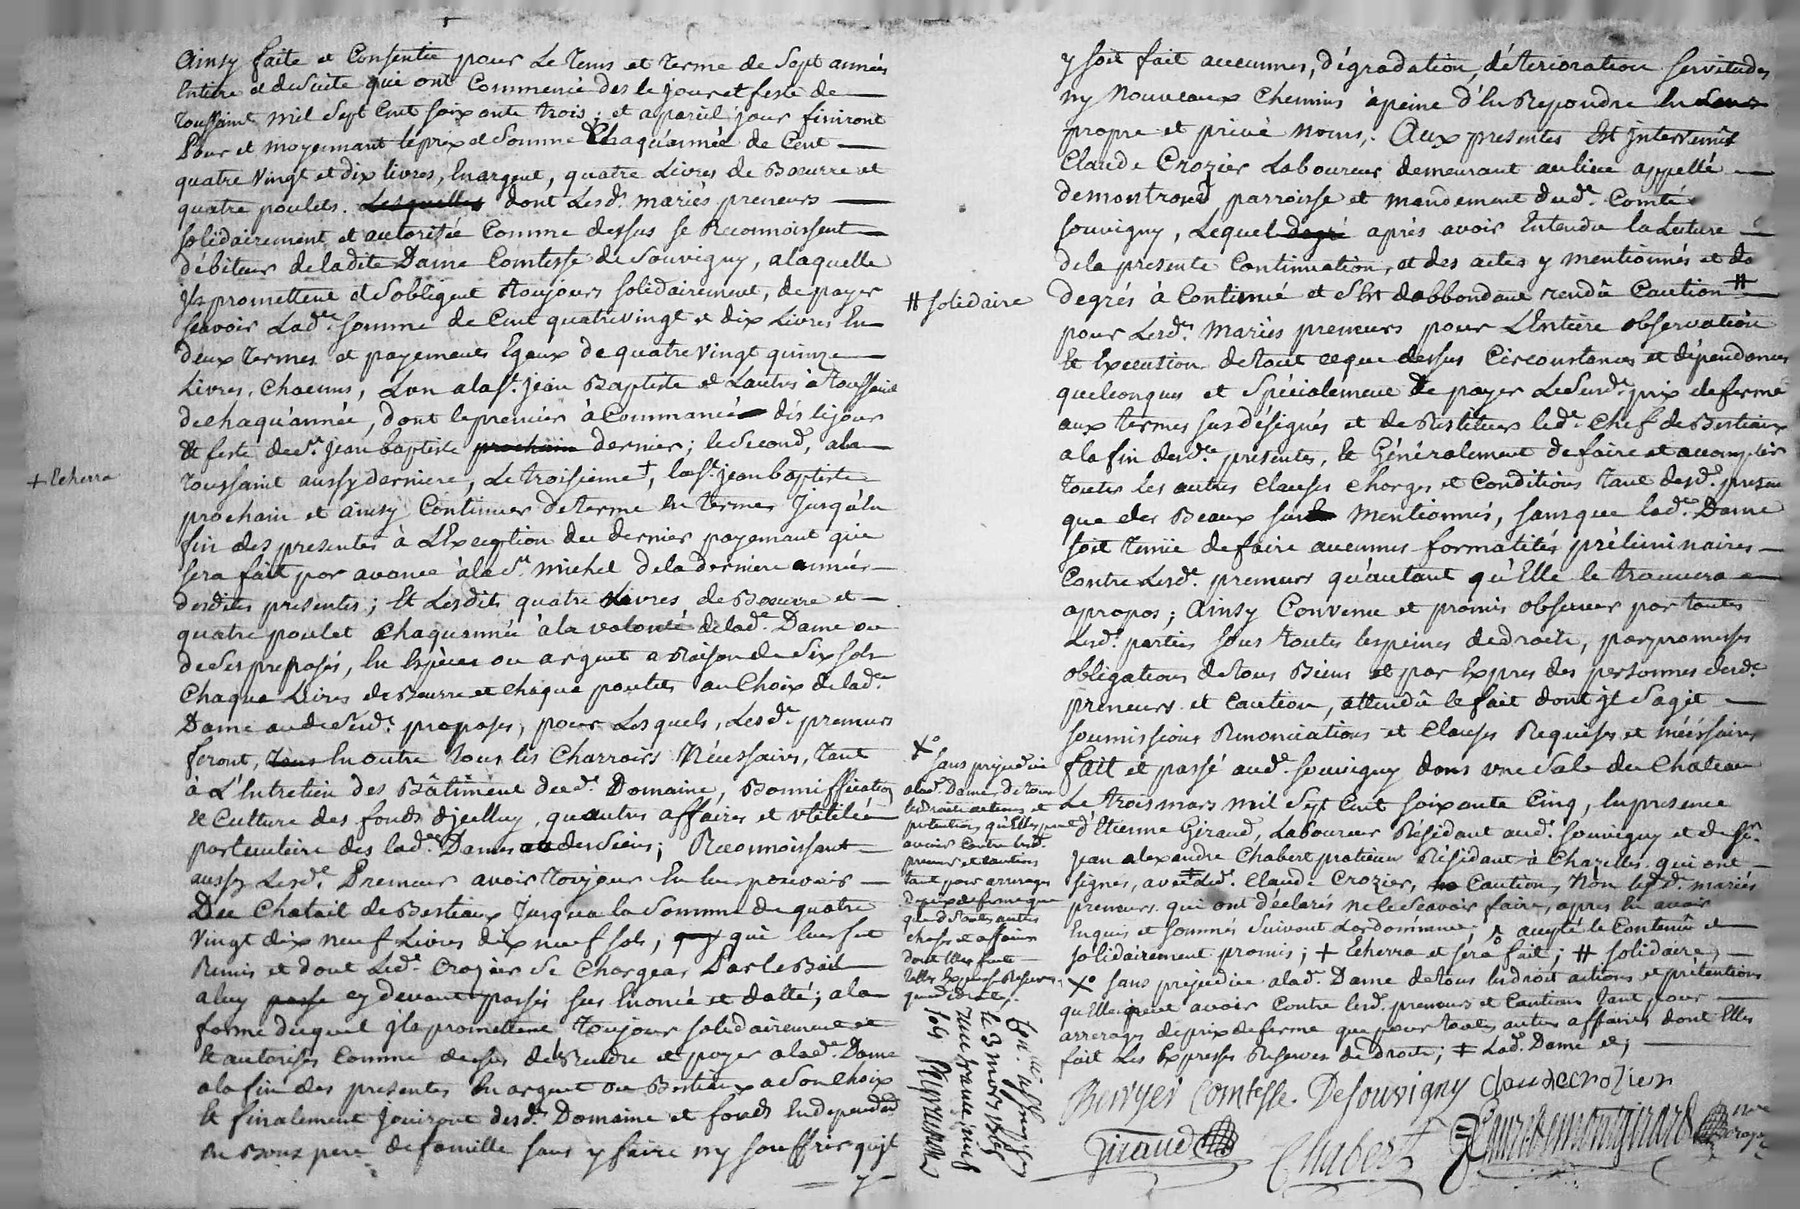 Ainsy faite et Consentie pour Le tems et terme de Sept années
Entiere et de Suite qui ont Commencé des le jour et feste de
Toussaint mil Sept Cent soixante trois; et a pareil jour finiront
Pour et moyennant le prix et Somme Chaqu'année de Cent
quatre Vingt et dix livres, En argent, quatre Livres de Boeurre et
quatre poulets. Lesquelles dont Lesd. mariés preneurs
solidairement et autorisée Comme dessus se Reconnoissent
débiteurs de ladite Dame Comtesse de Souvigny, a laquelle
Ils promettent et S'obligent toujours solidairement, de payer
scavoir Lad. somme de Cent quatre vingt et dix Livres En
deux termes et payements Egaux de quatre Vingt quinze
Livres, Chacuns, L'un a la St. jean Baptiste et L'autre à toussaint
de chaqu'année, dont le premier à Commancé dès le jour
et feste de St. Jean baptiste prochain dernier; le Second, a la
Toussaint aussy derniere, Le troisieme +, la St. jean baptiste
+ Echerra
prochain et ainsy Continuer de terme En termes Jusqu'a la
fin des presentes à L'Exception du dernier payemant qui
sera fait par avance à la St. michel de la derniere année
desdites presentes; Et Lesdits quatre Livres de Boeurre et
quatre poulet Chaquannée à la volonté de lad. Dame ou
de Ses preposés, En Espèces ou argent a Raison de Six sols
Chaque Livres de Beurre et chaque poulets au Choix de lad.
Dame ou de Sesd. preposes, pour Lesquels, Lesd. preneurs
feront, tous En outre tous les Charroirs Nécessaires, tant
à L'Entretien des Bâtiment dud. Domaine, Bonniffication
et Culture des fonds d'jcelluy, qu'autres affaires et Utilité
particuliere de lad. Dame ou des Siens; Reconnoissant
aussy Lesd. Preneurs avoir toujour En leur pouvoir
Du Chatail de Bestiaux Jusqua la Somme de quatre
Vingt dix neuf Livres dix neuf sols, qui leur fut
Remis et dont Led. Crozier Se Chargea Par le Bail
a luy passe cy devant passés sus Enoncé et datté; a la
forme duquel ils promettent toujour solidairement et
et autorisés Comme dessus de Rendre et payer a lad. Dame
a la fin des presentes En argent ou Bestiaux a Son Choix
Et finalement Jouiront desd. Domaine et fonds En dependant
En Bons pere de famille sans y faire ny souffrir qu'il
y soit fait aucunnes, dégradation, déterioration servitudes
ny Nouveaux Chemins à peine d'En Repondre En Leur
propre et privé noms. Aux presentes Est jntervenu
Claude Crozier Laboureur demeurant au lieu appellé
de montrond, parroisse et mandement dud. Comté
souvigny, Lequel degré aprés avoir Entendu la Lecture
de la presente Continuation, et des actes y mentionnés et de
degrés à Continué et s'Est d'abbondant rendû Caution #
# solidaire
pour Lesd. Mariès preneurs pour L'Entiere observation
Et Execution de tout ce que dessus Circonstances et dépendances
quelconques et Spécialement de payer Le Susd. prix de ferme
aux termes sus désignés et de Restituer led. Chef de Bestiaux
a la fin desd. presentes, Et Généralement de faire et accomplir
toutes les autres Clauses Charges et Conditions tant desd. presen
que des Beaux sus Mentionnés, sans que lad. Dame
soit tenüe de faire aucunnes formalités préliminaires
Contre Lesd. preneurs qu'autant qu'Elle le trouvera
apropos; Ainsy Convenu et promis observer par toutes
Lesd. parties sous toutes les peines de droits, par promesses
obligations de tous Biens et par Expres des personnes desd.
preneurs et Caution, attendû le fait dont jl S'agit
soumissions Renonciations et Clauses Requises et nécéssaires
fait et passé aud. souvigny dans une Sale du Chateau
Le trois mars mil Sept Cent soixante Cinq, En presence
d'Etienne Giraud, Laboureur Résidant aud. Souvigny et de Sr.
Jean alexandre Chabert praticien Résidant à Chazelles qui ont
signés, avec # Led. Claude Crozier, Caution, Non lesd. mariés
preneurs qui ont déclarés ne le Scavoir faire, apres En avoir
Enquis et sommés Suivant L'ordonnance, accepté le Contenû et
solidairement promis; + Echerra et sera fait; # solidaire,
X° sans prejudice a lad. Dame de tous les droit actions et prétentions
qu'Elle peut avoir Contre Lesd. preneurs et Cautions tant pour
arrerages de prix de ferme que pour toutes autres affaires dont Elles
fait Les Expresses Reserves de droits; ‡ Lad. Dame et;
X°
sans prejudice
a lad. Dame de tous
les droits actions et
pretentions qu'Elles peut
avoir Contre Lesd.
preneurs et Cautions
tant pour arrerages
de prix de ferme que
que de toutes autres
choses et affaires
dont Elles fait
les Expresses Reserves
que de droits.
le 3 mars 1765
Bervyer Comtesse De Souvigny Claude crozier
Giraud Chabert